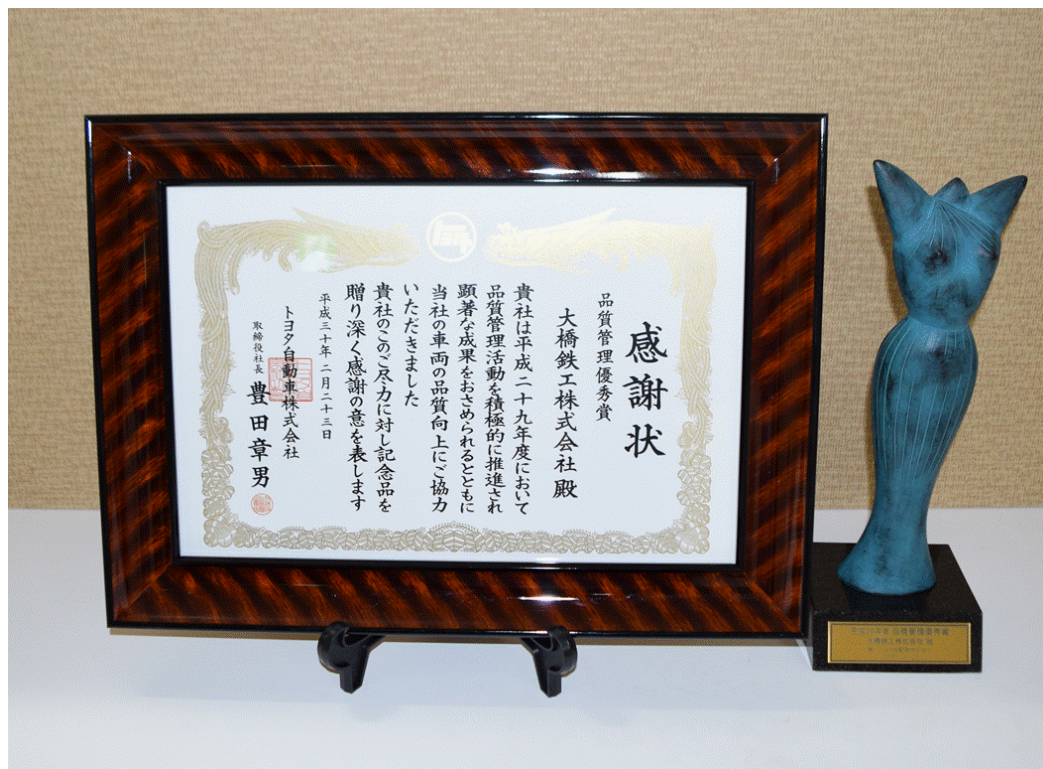 トヨタ
感謝状
品質管理優秀賞
大橋鉄工株式会社殿
貴社は平成二十九年度において
品質管理活動を積極的に推進され
顕著な成果をおさめられるとともに
当社の車両の品質向上にご協力
いただきました
貴社のこのご尽力に対し記念品を
贈り深く感謝の意を表します
平成三十年二月二十三日
トヨタ自動車株式会社
取締役社長 豊田章男
品質管理優秀賞
大橋鉄工株式会社 殿